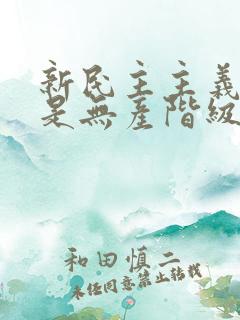 新民主主義
是無產階級
和田慎二
未經同意禁止轉載